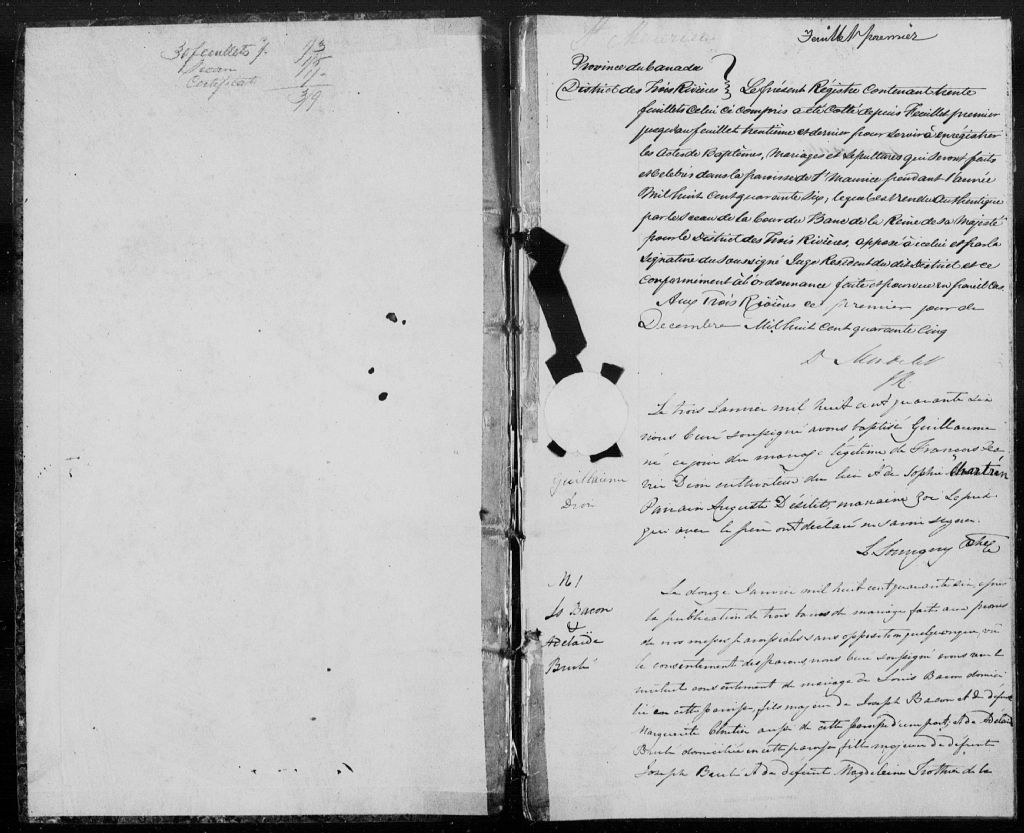 30 feuillets 7.
1/3
Sceau
1/8
Certificat
1/-
39
St Maurice
Feuillet premier
Province du Canada
District des Trois Rivières
Le présent Régistre contenant trente
feuillets celui ci compris a été cotté depuis Feuillet premier
jusqu'au feuillet trentième et dernier pour servir à enregistrer
les Actes de Baptêmes, Mariages et Sépultures qui seront faits
et célébrés dans la paroisse de St Maurice pendant l'année
Mil huit cent quarante Six, lequel est rendu authentique
par le Sceau de la Cour du Banc de la Reine de sa Majesté
pour le District des Trois Rivières, apposé à icelui et par la
Signature du soussigné Juge Resident du dit District et ce
conformément à l'ordonnance faite et pourvue en pareil cas.
Aux Trois Rivières ce premier jour de
Decembre Mil huit cent quarante Cinq
D. Mondelet
JR
Le trois Janvier mil huit cent quarante six
nous Curé soussigné avons baptisé Guillaume
né ce jour du mariage légitime de François
Dion cultivateur du lieu & de Sophie Chartren
Parrain Auguste Désilets, marraine Zoé
qui avec le père ont déclaré ne savoir signer.
Guillaume
Dion
M 1
Ls Bacon
&
Adelaïde
Brulé
Le douze Janvier mil huit cent quarante six, après
la publication de trois bans de mariage faite aux prônes
de nos messes paroissiales sans opposition quelconque, vu
le consentement des parens nous Curé soussigné avons reçu le
mutuel consentement de mariage de Louis Bacon domici
lié en cette paroisse, fils majeur de Joseph Bacon et de défunte
Marguerite aussi de cette paroisse d'une part, & de Adélaïde
Brulé domiciliée en cette paroisse, fille majeure de défunt
Joseph Brulé & de défunte Magdeleine Trottier de la